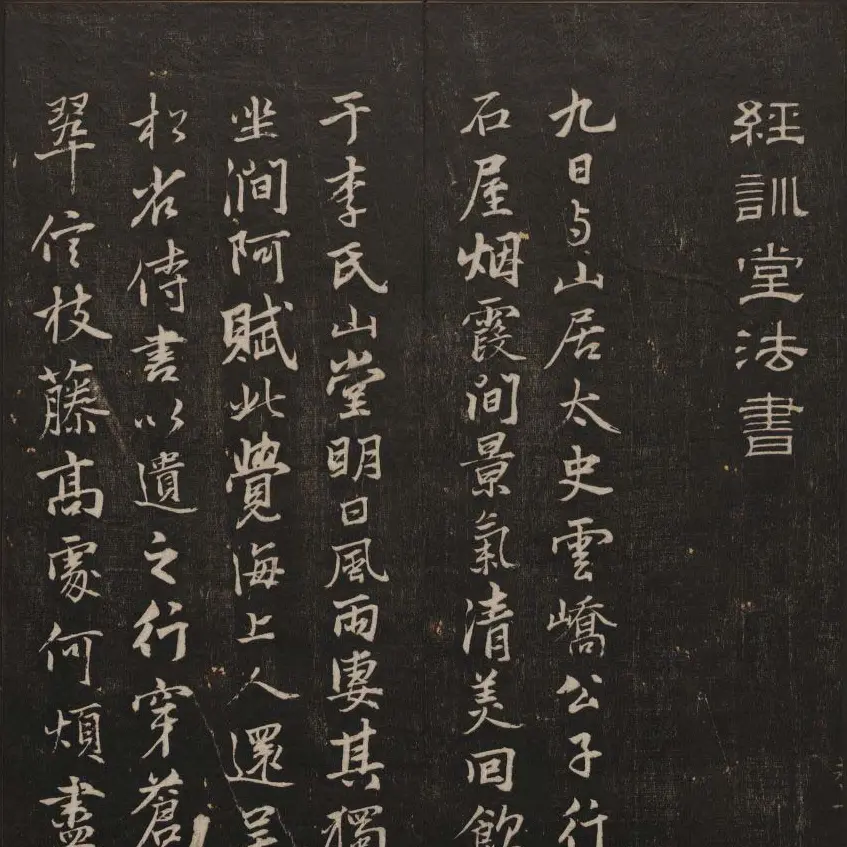 經訓堂法書
九日与山居太史雲嶠公子行
石屋烟霞澗景氣清美回飲
于李氏山堂明日風雨凄其獨
坐澗阿賦此覺海上人還呈
松岩侍書以遺之行穿蒼
翠信枝藤高處何煩盡